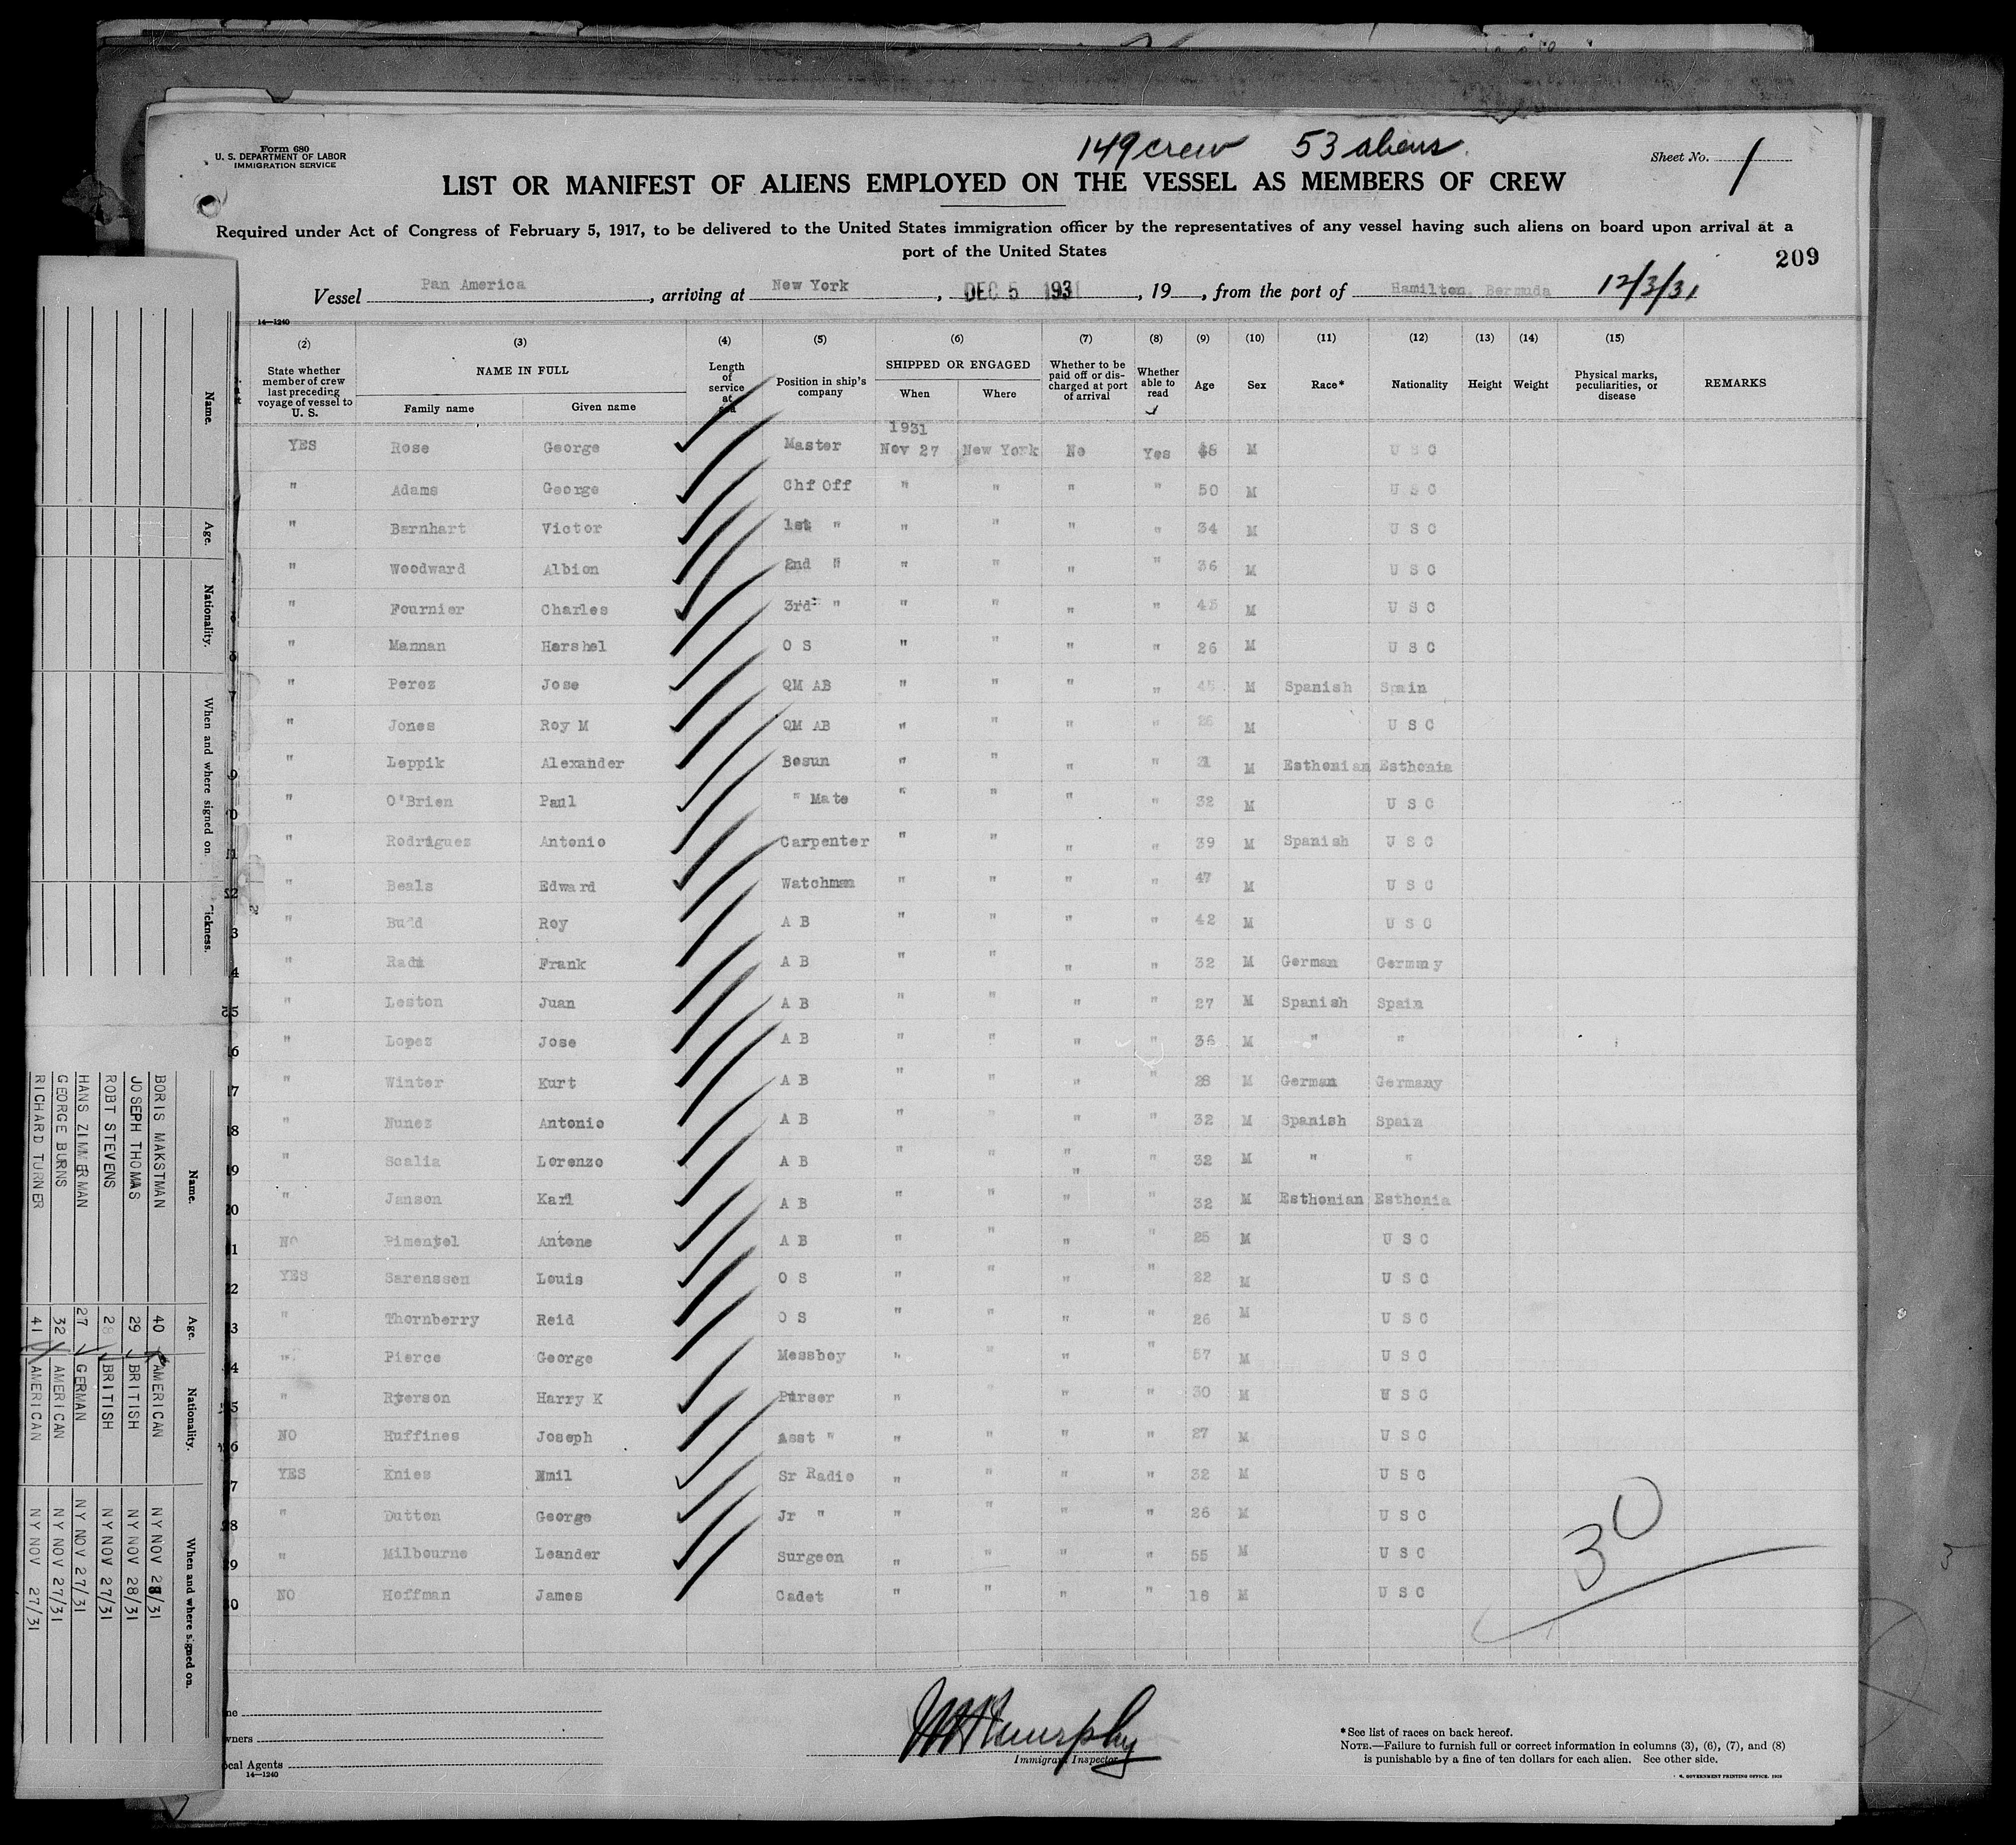 149 crew 53 aliens
Form 680
U. S. DEPARTMENT OF LABOR
IMMIGRATION SERVICE
Sheet No. 1
LIST OR MANIFEST OF ALIENS EMPLOYED ON THE VESSEL AS MEMBERS OF CREW
Required under Act of Congress of February 5, 1917, to be delivered to the United States immigration officer by the representatives of any vessel having such aliens on board upon arrival at a
port of the United States
209
Vessel Pan America, arriving at New York, DEC 5 1931, 19, from the port of Hamilton, Bermuda 12/3/31
14—1240
(2) (3) (4) (5) (6) (7) (8) (9) (10) (11) (12) (13) (14) (15)
State whether member of crew last preceding voyage of vessel to U. S. NAME IN FULL Family name Given name Length of service at sea Position in ship's company SHIPPED OR ENGAGED When Where Whether to be paid off or discharged at port of arrival Whether able to read Age Sex Race* Nationality Height Weight Physical marks, peculiarities, or disease REMARKS
1931
YES Rose George Master Nov 27 New York No Yes M U S C
" Adams George Chf Off " " " " 50 M U S C
" Barnhart Victor 1st " " " " " 34 M U S C
" Woodward Albion 2nd " " " " " 36 M U S C
" Fournier Charles 3rd " " " " " 43 M U S C
6 " Mannan Hershel O S " " " " 26 M U S C
7 " Perez Jose QM AB " " " " 45 M Spanish Spain
8 " Jones Roy M QM AB " " " " 26 M U S C
9 " Leppik Alexander Bosun " " " " 21 M Esthonian Esthonia
0 " O'Brien Paul " Mate " " " " 32 M U S C
11 " Rodriguez Antonio Carpenter " " " " 39 M Spanish U S C
12 " Beals Edward Watchman " " " " 47 M U S C
3 " Budd Roy A B " " " " 42 M U S C
4 " Radi Frank A B " " " " 32 M German Germany
15 " Leston Juan A B " " " " 27 M Spanish Spain
16 " Lopez Jose A B " " " " 36 M " "
17 " Winter Kurt A B " " " " 28 M German Germany
18 " Nunez Antonio A B " " " " 32 M Spanish Spain
19 " Scalia Lorenzo A B " " " " 32 M " "
20 " Janson Karl A B " " " " 32 M Esthonian Esthonia
21 NO Pimentel Antone A B " " " " 25 M U S C
22 YES Sarenssen Louis O S " " " " 22 M U S C
3 " Thornberry Reid O S " " " " 26 M U S C
4 " Pierce George Messboy " " " " 57 M U S C
5 " Ryerson Harry K Purser " " " " 30 M U S C
26 NO Huffines Joseph Asst " " " " " 27 M U S C
7 YES Knies Emil Sr Radio " " " " 32 M U S C
28 " Dutton George Jr " " " " " 26 M U S C
29 " Milbourne Leander Surgeon " " " " 55 M U S C
30 NO Hoffman James Cadet " " " " 18 M U S C
30
Immigrant Inspector
wners
ocal Agents
14—1240
*See list of races on back hereof.
NOTE.—Failure to furnish full or correct information in columns (3), (6), (7), and (8)
is punishable by a fine of ten dollars for each alien. See other side.
GOVERNMENT PRINTING OFFICE
Name. Age. Nationality. When and where signed on. ickness.
Name. Age. Nationality. When and where signed on.
BORIS MAKSTMAN 40 AMERICAN N Y NOV 28/31
JOSEPH THOMAS 29 BRITISH N Y NOV 28/31
ROBT STEVENS 28 BRITISH N Y NOV 27/31
HANS ZIMMERMAN 27 GERMAN N Y NOV 27/31
GEORGE BURNS 32 AMERICAN N Y NOV 27/31
RICHARD TURNER 41 AMERICAN N Y NOV 27/31